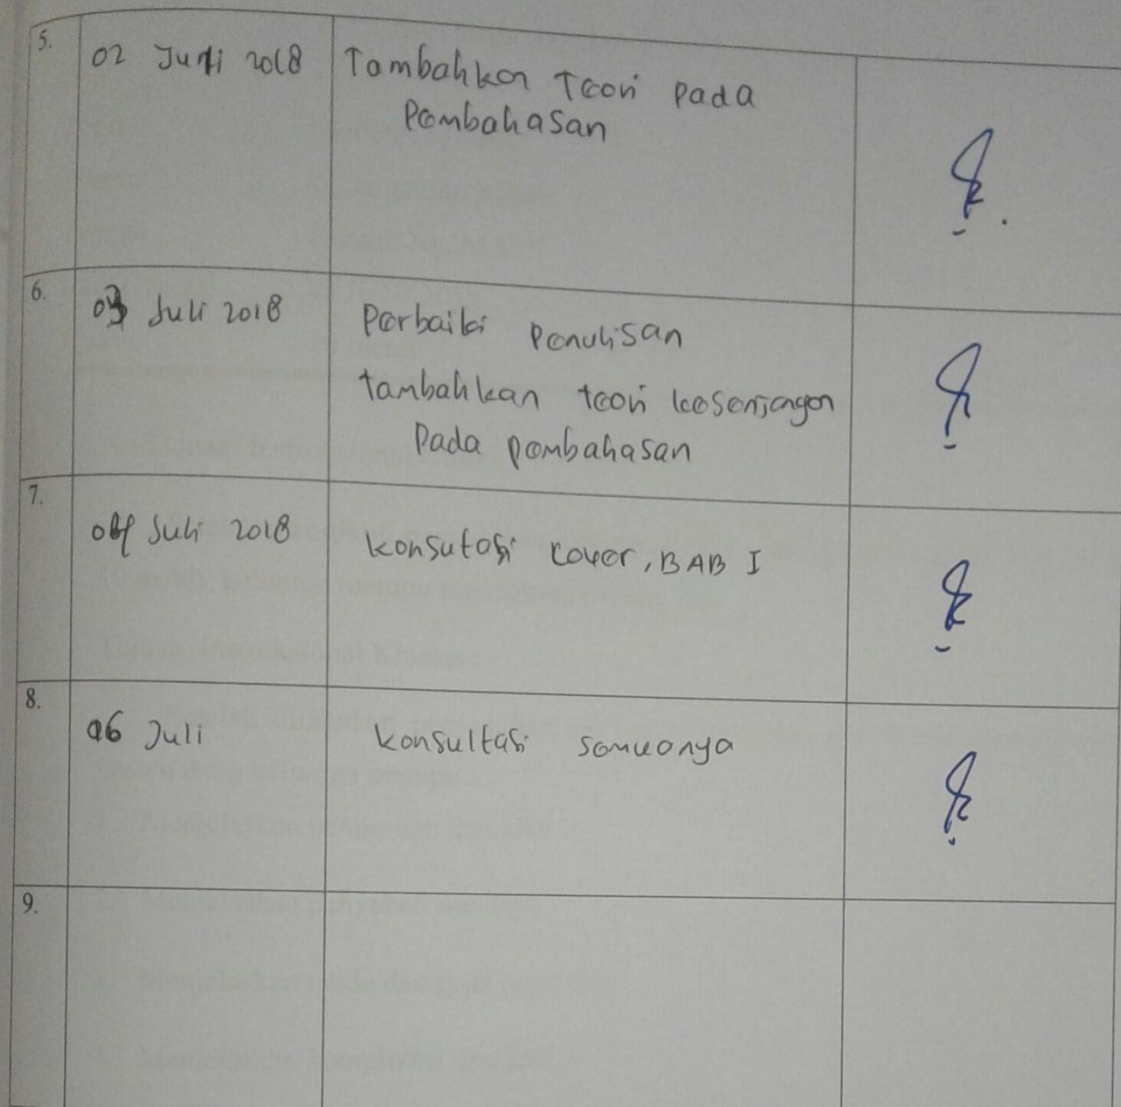 5.
02 Juli 2018
Tambahkan Teori pada
Pembahasan
6.
03 Juli 2018
Perbaiki penulisan
tambahkan teori kesenjangan
pada pembahasan
7.
04 Juli 2018
Konsutasi Cover, BAB I
8.
06 Juli
Konsultasi semuanya
9.